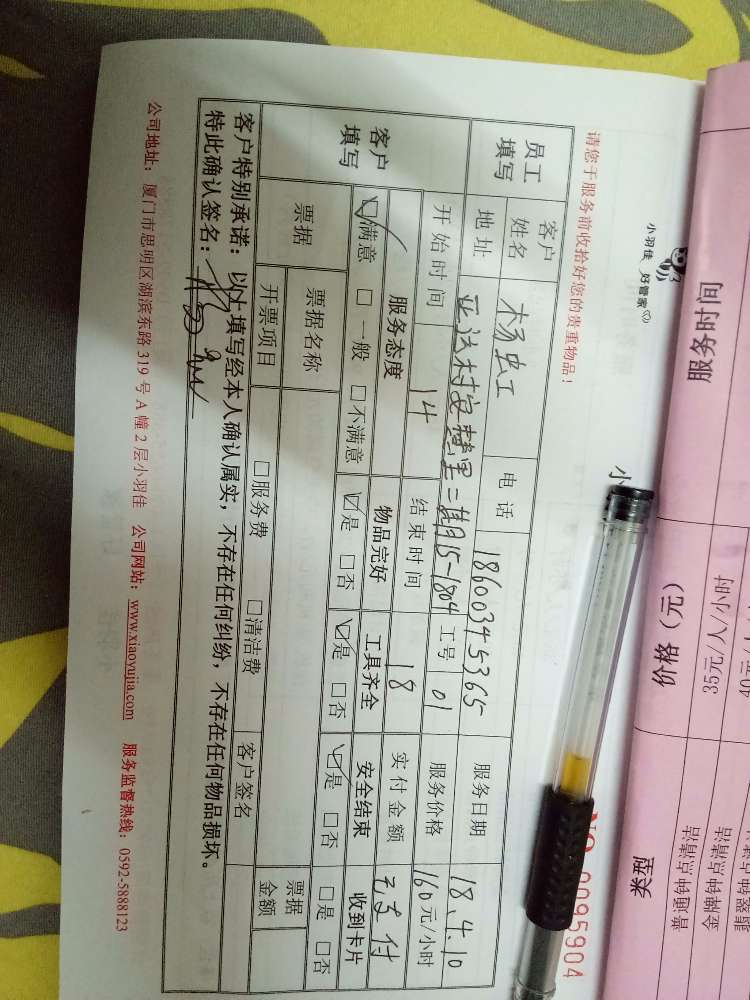 小羽佳 好管家
小
NO 0095904
请您于服务前收拾好您的贵重物品!
员工填写 客户姓名 杨虹 电话 18600345365 服务日期 18.4.10
地址 亚洁村安慧里二期15-1804 工号 01 服务价格 160元/小时
开始时间 14 结束时间 18 实付金额 已支付
客户填写 服务态度 物品完好 工具齐全 安全结束 收到卡片
☑满意 □一般 □不满意 ☑是 □否 ☑是 □否 ☑是 □否 □是 □否
票据 票据名称 票据金额
开票项目 □服务费 □清洁费 客户签名
客户特别承诺:以上填写经本人确认属实,不存在任何纠纷,不存在任何物品损坏。
特此确认签名:
公司地址:厦门市思明区湖滨东路319号A幢2层小羽佳 公司网站:www.xiaoyujia.com 服务监督热线:0592-5888123
服务时间
价格(元) 类型
35元/人/小时 普通钟点清洁
40元/ 金牌钟点清洁